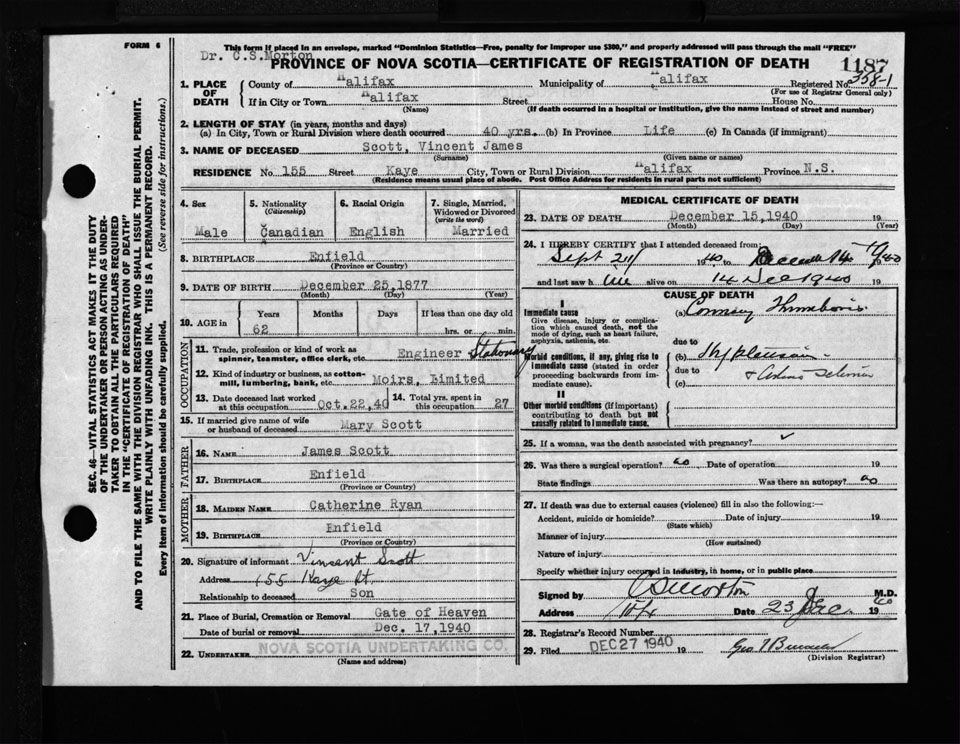 FORM 6
This form if placed in an envelope, marked "Dominion Statistics—Free, penalty for improper use $300," and properly addressed will pass through the mail "FREE"
Dr. C.S.Morton
PROVINCE OF NOVA SCOTIA—CERTIFICATE OF REGISTRATION OF DEATH
1187
1. PLACE OF DEATH
County of Halifax Municipality of Halifax Registered No. 358-1
(For use of Registrar General only)
If in City or Town Halifax Street House No.
(Name) (If death occurred in a hospital or institution, give the name instead of street and number)
2. LENGTH OF STAY (in years, months and days)
(a) In City, Town or Rural Division where death occurred 40 yrs. (b) In Province Life (c) In Canada (if immigrant)
3. NAME OF DECEASED Scott, Vincent James
(Surname) (Given name or names)
RESIDENCE No 155 Street Kaye City, Town or Rural Division Halifax Province N.S.
(Residence means usual place of abode. Post Office Address for residents in rural parts not sufficient)
4. Sex
Male
5. Nationality
(Citizenship)
Canadian
6. Racial Origin
English
7. Single, Married, Widowed or Divorced
(write the word)
Married
8. BIRTHPLACE Enfield
(Province or Country)
9. DATE OF BIRTH December 25,1877
(Month) (Day) (Year)
10. AGE in
Years Months Days If less than one day old
62 hrs. or min.
OCCUPATION
11. Trade, profession or kind of work as spinner, teamster, office clerk, etc. Engineer Stationary
12. Kind of industry or business, as cotton-mill, lumbering, bank, etc. Moirs, Limited
13. Date deceased last worked at this occupation Oct.22,40
14. Total yrs. spent in this occupation 27
15. If married give name of wife or husband of deceased Mary Scott
FATHER
16. NAME James Scott
17. BIRTHPLACE Enfield
(Province or Country)
MOTHER
18. MAIDEN NAME Catherine Ryan
19. BIRTHPLACE Enfield
(Province or Country)
20. Signature of informant Vincent Scott
Address 155 Kaye St.
Relationship to deceased Son
21. Place of Burial, Cremation or Removal Gate of Heaven
Date of burial or removal Dec. 17,1940
22. UNDERTAKER NOVA SCOTIA UNDERTAKING CO.
(Name and address)
MEDICAL CERTIFICATE OF DEATH
23. DATE OF DEATH December 15,1940 19
(Month) (Day) (Year)
24. I HEREBY CERTIFY that I attended deceased from:
Sept 21 1940 to December 14 1940
and last saw h im alive on 14 Dec 1940 19
CAUSE OF DEATH
I
Immediate cause
Give disease, injury or complication which caused death, not the mode of dying, such as heart failure, asphyxia, asthenia, etc.
(a) Coronary Thrombosis
due to
Morbid conditions, if any, giving rise to immediate cause (stated in order proceeding backwards from immediate cause).
(b) Hypertension
due to
(c)
II
Other morbid conditions (if important) contributing to death but not causally related to immediate cause.
25. If a woman, was the death associated with pregnancy?
26. Was there a surgical operation? no Date of operation 19
State findings Was there an autopsy? no
27. If death was due to external causes (violence) fill in also the following:—
Accident, suicide or homicide? Date of injury 19
(State which)
Manner of injury
(How sustained)
Nature of injury
Specify whether injury occurred in industry, in home, or in public place
Signed by CSMorton M.D.
Address Hfx Date 23 Dec. 1940
28. Registrar's Record Number
29. Filed DEC 27 1940 19
(Division Registrar)
SEC. 46—VITAL STATISTICS ACT MAKES IT THE DUTY
OF THE UNDERTAKER OR PERSON ACTING AS UNDER-
TAKER TO OBTAIN ALL THE PARTICULARS REQUIRED
IN THE "CERTIFICATE OF REGISTRATION OF DEATH"
AND TO FILE THE SAME WITH THE DIVISION REGISTRAR WHO SHALL ISSUE THE BURIAL PERMIT.
WRITE PLAINLY WITH UNFADING INK. THIS IS A PERMANENT RECORD.
Every item of information should be carefully supplied. (See reverse side for instructions.)